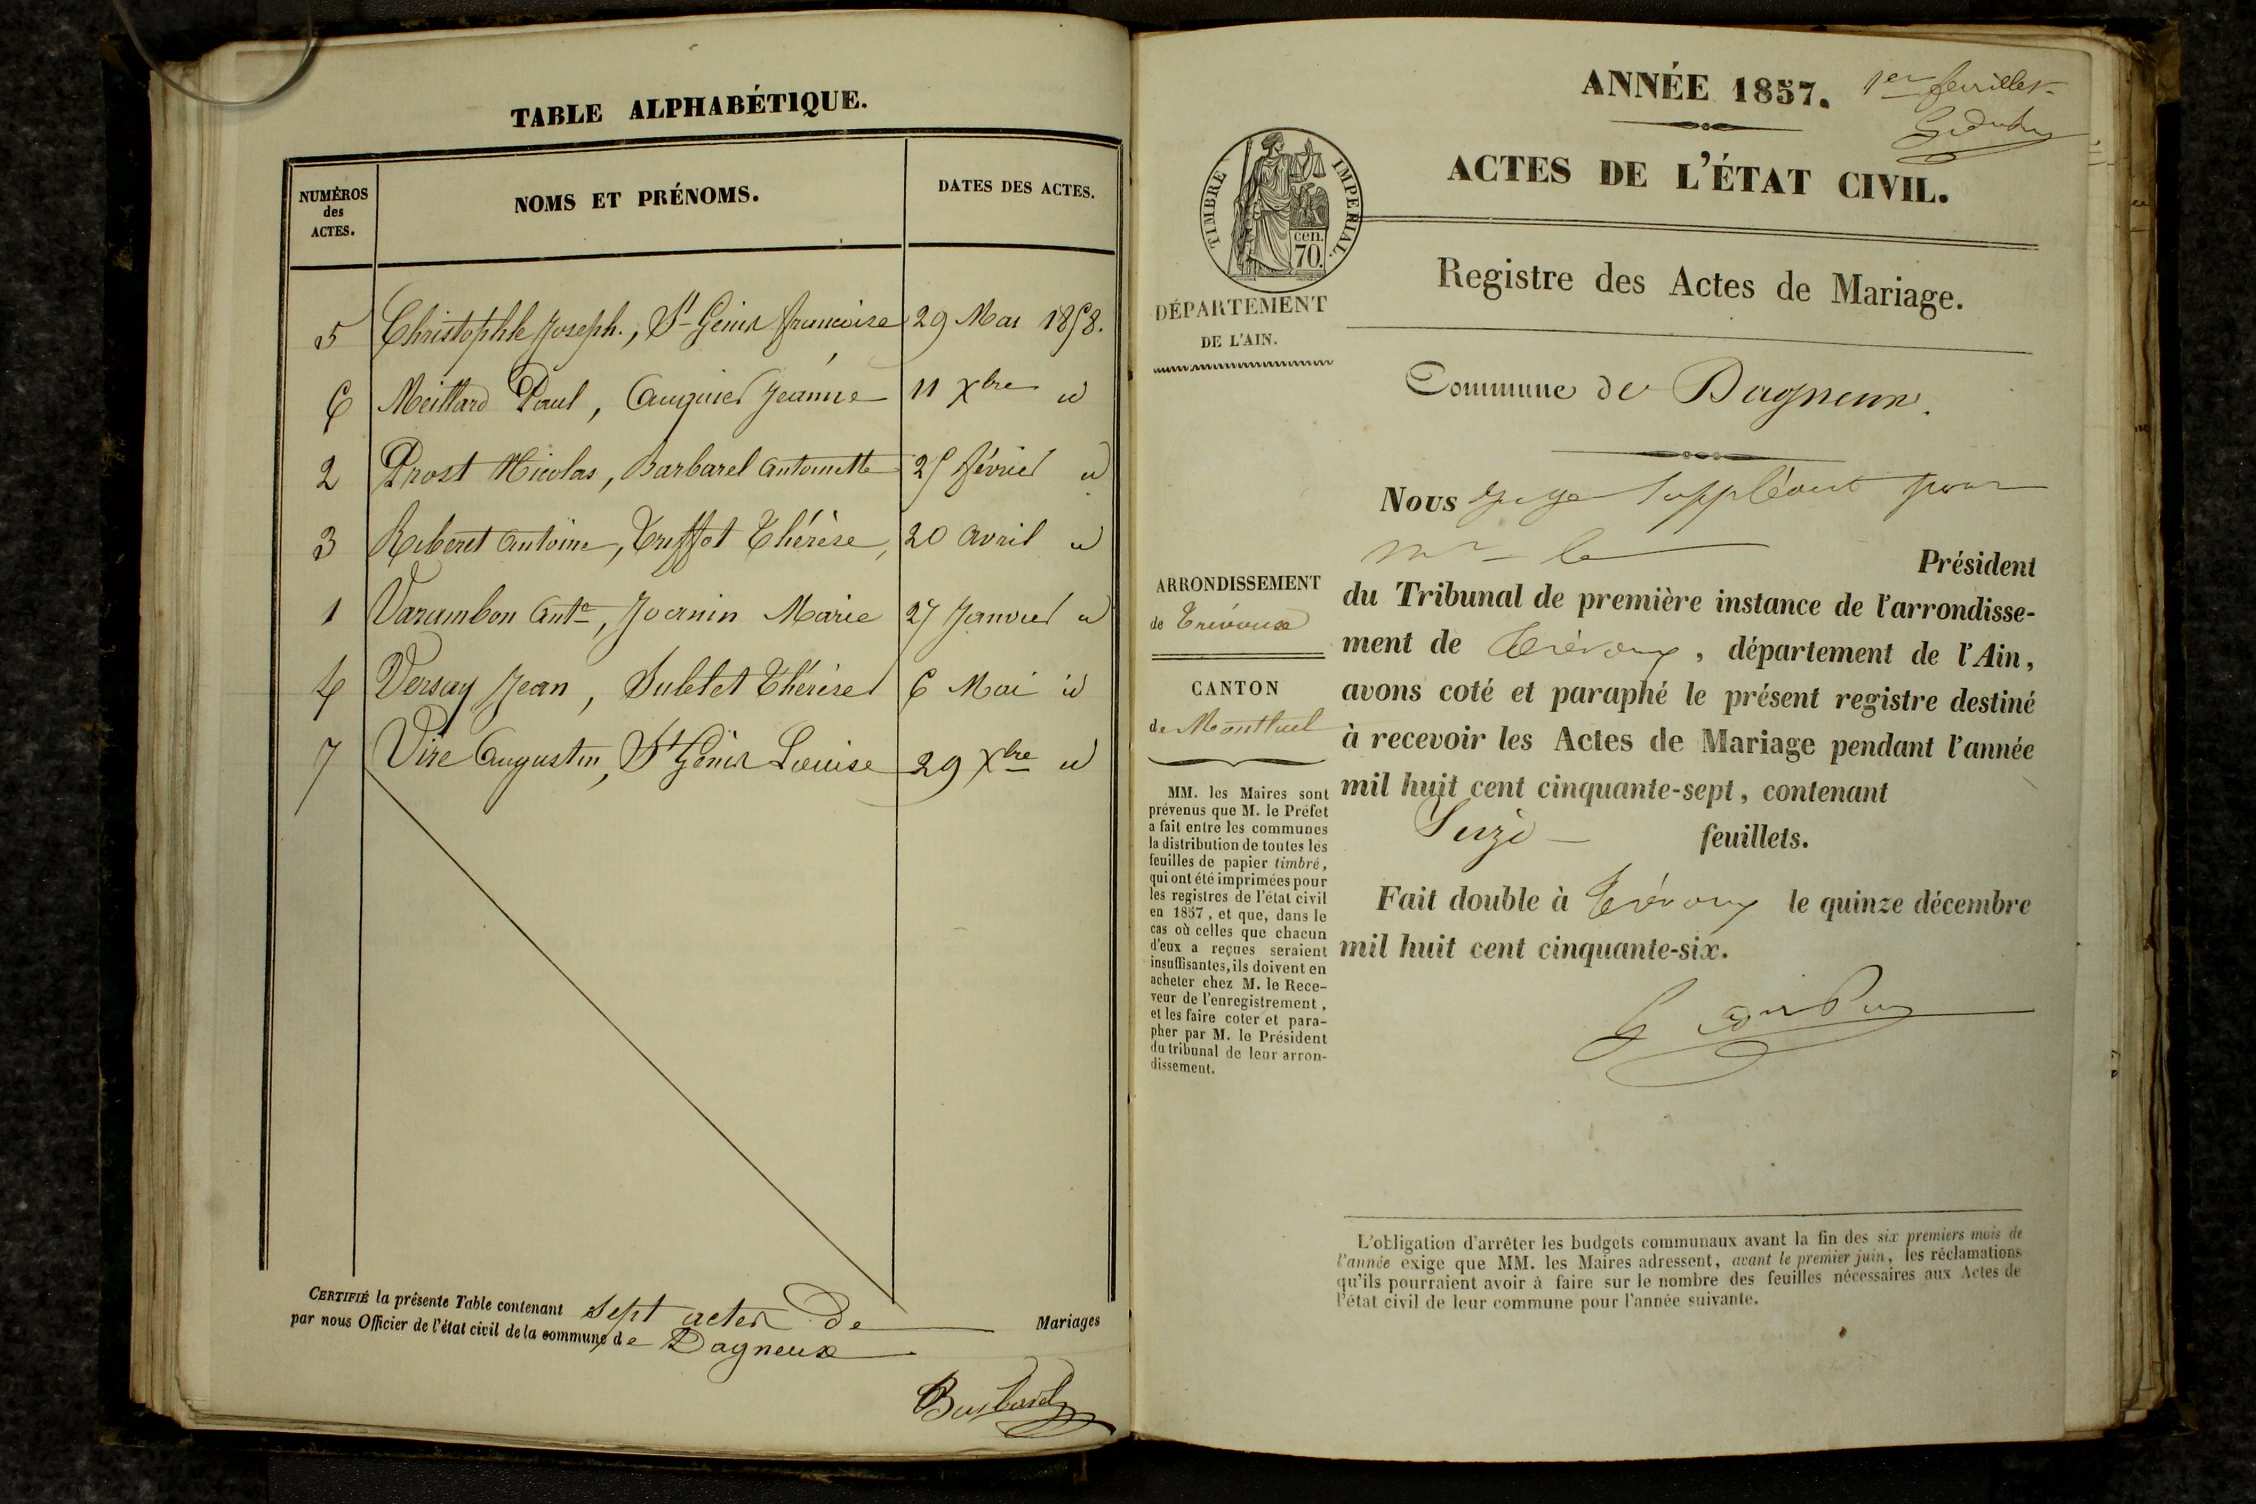 TABLE ALPHABÉTIQUE.
NUMÉROS
des
ACTES.
NOMS ET PRÉNOMS.
DATES DES ACTES.
5 Christophle Joseph., St Genis francoise 29 Mai 1858.
6 Meillard Paul, Jeanne 11 Xbre id
2 Prost Nicolas, Barbarel antoinette 25 février id
3 Reberet antoine, Truffot Thérèse, 20 avril id
1 Varambon Ante, Joanin Marie 27 Janvier id
4 Versay Jean, Sublet Thérèse 6 Mai id
7 Vire Augustin, St Génis Louise 29 Xbre id
CERTIFIÉ la présente Table contenant sept actes de Mariages
par nous Officier de l'état civil de la commune de Dagneux
Barbarel
ANNÉE 1857. 1er feuillet
ACTES DE L'ÉTAT CIVIL.
TIMBRE IMPERIAL.
cen.
70.
DÉPARTEMENT
DE L'AIN.
Registre des Actes de Mariage.
Commune de Dagneux.
Nous juge suppléant pour
mr le Président
du Tribunal de première instance de l'arrondisse-
ment de Trévoux, département de l'Ain,
avons coté et paraphé le présent registre destiné
à recevoir les Actes de Mariage pendant l'année
mil huit cent cinquante-sept, contenant
Seize feuillets.
Fait double à Trévoux le quinze décembre
mil huit cent cinquante-six.
ARRONDISSEMENT
de Trévoux
CANTON
de Montluel
MM. les Maires sont
prévenus que M. le Préfet
a fait entre les communes
la distribution de toutes les
feuilles de papier timbré,
qui ont été imprimées pour
les registres de l'état civil
en 1857, et que, dans le
cas où celles que chacun
d'eux a reçues seraient
insuffisantes, ils doivent en
acheter chez M. le Rece-
veur de l'enregistrement,
et les faire coter et para-
pher par M. le Président
du tribunal de leur arron-
dissement.
L'obligation d'arrêter les budgets communaux avant la fin des six premiers mois de
l'année exige que MM. les Maires adressent, avant le premier juin, les réclamations
qu'ils pourraient avoir à faire sur le nombre des feuilles nécessaires aux Actes de
l'état civil de leur commune pour l'année suivante.